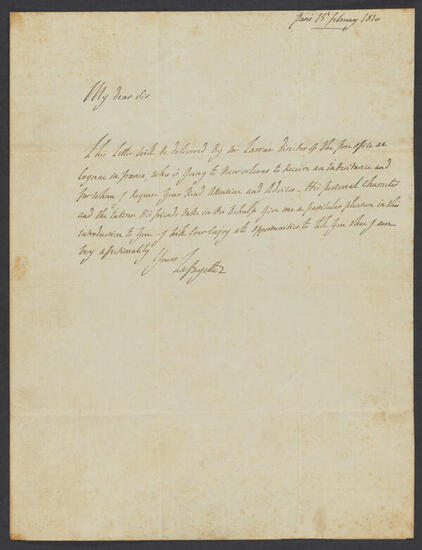 Paris 15 february
My dear Sir
This Letter Will be delivered By Mr director of the post office at
Cognac in france, who is going to Neworleans to Receive an inheritance and
for Whom I Request Your Kind Attention and Advice. His personal Character
and the interest His friends take in His Behalf Give me a particular pleasure in this
introduction to You I with love enjoy all opportunities to tell You that I am
Very affectionately
Yours
Lafayette